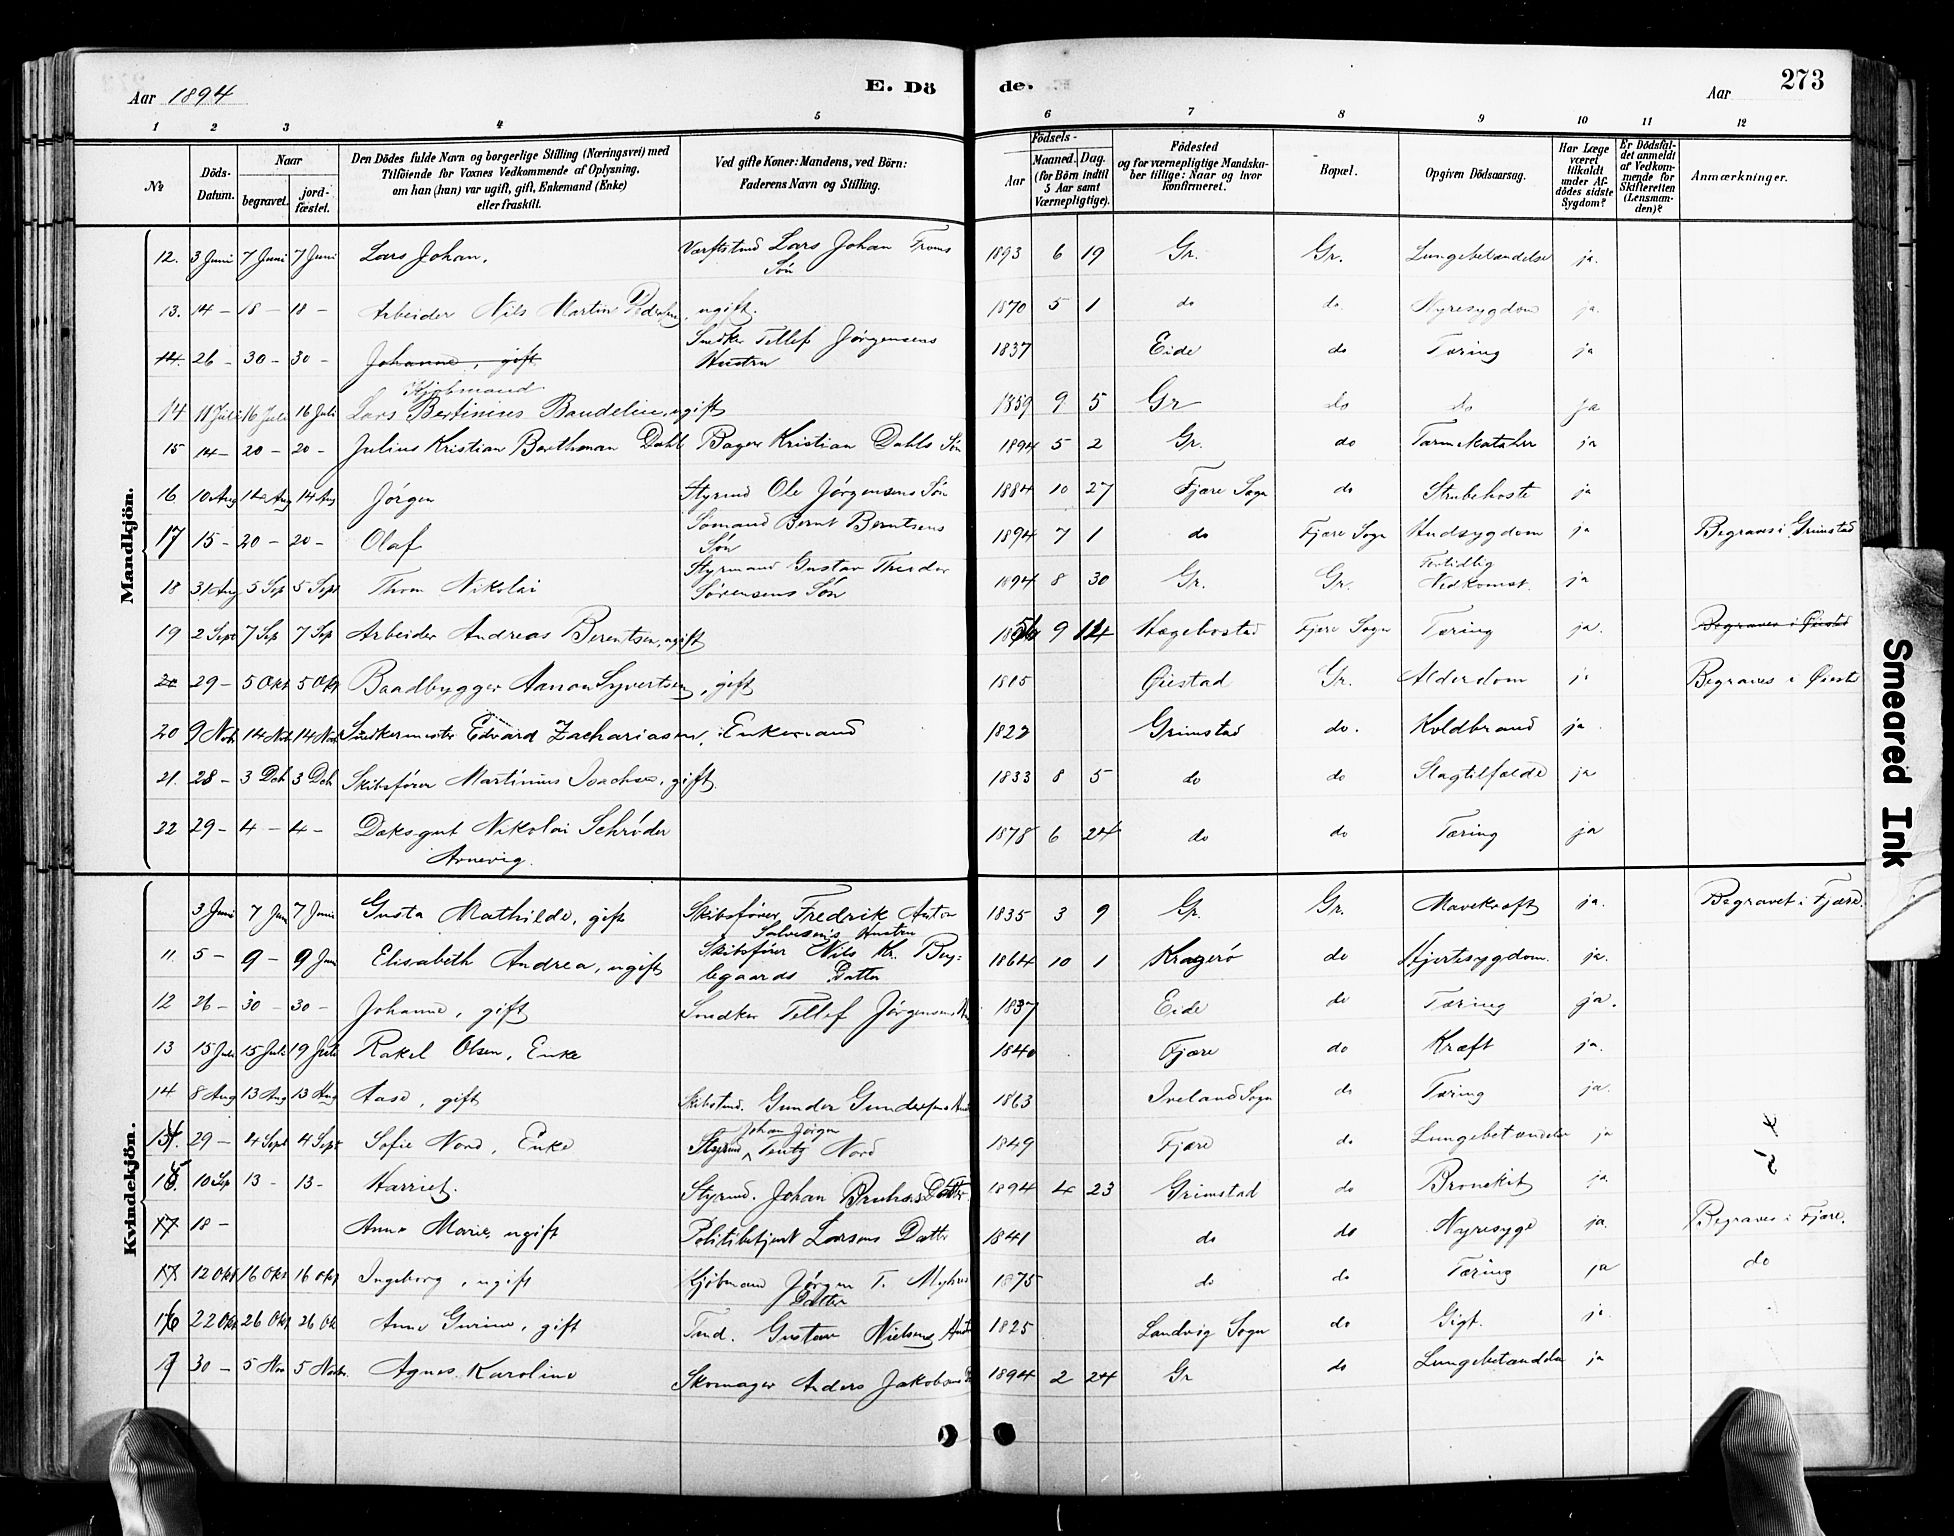 Aar 1894
E. Dö
de.
Aar
273
1 2 3 4 5 6 7 8 9 10 11 12
No
Döds-Datum.
Naar
begravet.
jord-fæstet.
Den Dödes fulde Navn og borgerlige Stilling (Næringsvei) med
Tilföiende for Voxnes Vedkommende af Oplysning,
om han (han) var ugift, gift, Enkemand (Enke)
eller fraskilt.
Ved gifte Koner: Mandens, ved Börn:
Faderens Navn og Stilling.
Födsels-
Aar
Maaned. Dag.
(for Börn indtil
5 Aar samt
Værnepligtige).
Födested
og for værnepligtige Mandska-
ber tillige: Naar og hvor
konfirmeret.
Bopæl.
Opgiven Dödsaarsag.
Har Læge
været
tilkaldt
under Af-
dödes sidste
Sygdom?
Er Dödsfal-
det anmeldt
af Vedkom-
mende for
Skifteretten
(Lensman-
den)?
Anmærkninger.
Mandkjön.
12. 3 Juni 7 Juni 7 Juni Lars Johan. Værftstmd Lars Johan Froms Søn 1893 6 19 Gr. Gr. Lungebetændelse ja.
13. 14 - 18 - 18 - Arbeider Nils Martin Pedersen, ugift. 1870 5 1 do do. Nyresygdom ja.
14. 26 - 30 - 30 - Johanne, gift Snedker Tellef Jørgensens Hustru 1837 Eide do Tæring ja
14 11 Juli 16 Juli 16 Juli Kjøbmand Lars Bertinius Baudelin, ugift 1859 9 5 Gr do do ja
15 14 - 20 - 20 - Julius Kristian Barthman Dahl Bager Kristian Dahls Søn 1894 5 2 Gr. do Tarmekatahr ja
16 10 Aug 14 Aug 14 Aug Jörgen Styrmd Ole Jörgensens Søn 1884 10 27 Fjære Sogn do Strubehoste ja
17 15 - 20 - 20 - Olaf Sømand Bernt Berntsens Søn 1894 7 1 do Fjære Sogn Hudsygdom ja Begraves i Grimstad
18 31 Aug 5 Sep 5 Sept Thom Nikolai Styrmand Gustav Theodor Sörensens Søn 1894 8 30 Gr. Gr. Fortidlig Nedkomst. ja
19 2 Sept 7 Sep 7 Sep Arbeider Andreas Berentsen, ugift 1856 9 14 Hægebostad Fjære Sogn Tæring ja. Begraves i Øiestad
20 29 - 5 Okt 5 Okt Baadbygger Aanon Syvertsen, gift 1815 Øiestad Gr. Alderdom ja Begraves i Øiestad
20 9 Nob 14 Nob 14 Nob Snedkermester Edvard Zachariasen, Enkemand 1822 Grimstad do. Koldbrand ja.
21. 28 - 3 Deb 3 Deb Skibsfører Martinius Isachsen, gift. 1833 8 5 do do Slagtilfælde ja
22 29 - 4 - 4 - Dæksgut Nikolai Schrøder Arnevig. 1878 6 24 do do Tæring ja
Kvindekjön.
3 Juni 7 Juni 7 Juni Gusta Mathilde, gift Skibsfører Fredrik Anton Salvesens Hustru 1835 3 9 Gr. Gr. Mavekræft ja. Begravet i Fjære.
11 5 - 9 - 9 Juni Elisabeth Andrea, ugift Skibsfører Nils Kr. Ber-legaards Datter 1864 10 1 Kragerö do Hjertesygdom. ja.
12 26 - 30 - 30 - Johanne, gift Snedker Tellef Jørgensens 1837 Eide do Tæring ja.
13 15 Juli 15 Juli 19 Juli Rakel Olsen, Enke 1840 Fjære do Kræft ja.
14 8 Aug 13 Aug 13 Aug Aase, gift Skibstmd. Gunder Gundersens 1863 Iveland Sogn do Tæring ja.
29 - 4 Sept 4 Sept Sofie Nord, Enke Styrmd Johan Jörgen Nord 1849 Fjære do Lungebetændelse ja 4
10 Sep 13 - 13 - Harriet. Styrmd. Johan Bruhns Datter 1894 4 23 Grimstad do Bronckit ja 5
17 18 - Anne Marie, ugift Politibetjent Larsens Datter 1841 do do Nyresyge ja Begraves i Fjære.
17 12 Okt 16 Okt 16 Okt Ingeborg, ugift Kjöbmand Jörgen T. Myhres Datter 1875 do do Tæring ja do
16 22 Okt 26 Okt 26 Ok Anne Gurine, gift Tmd. Gustav Nielsens 1825 Landvig Sogn do Gigt. ja.
17 30 - 5 Nov 5 Nobr. Agnes Karoline Skomager Anders Jakobsens 1894 2 24 Gr do Lungebetændelse ja
Smeared Ink